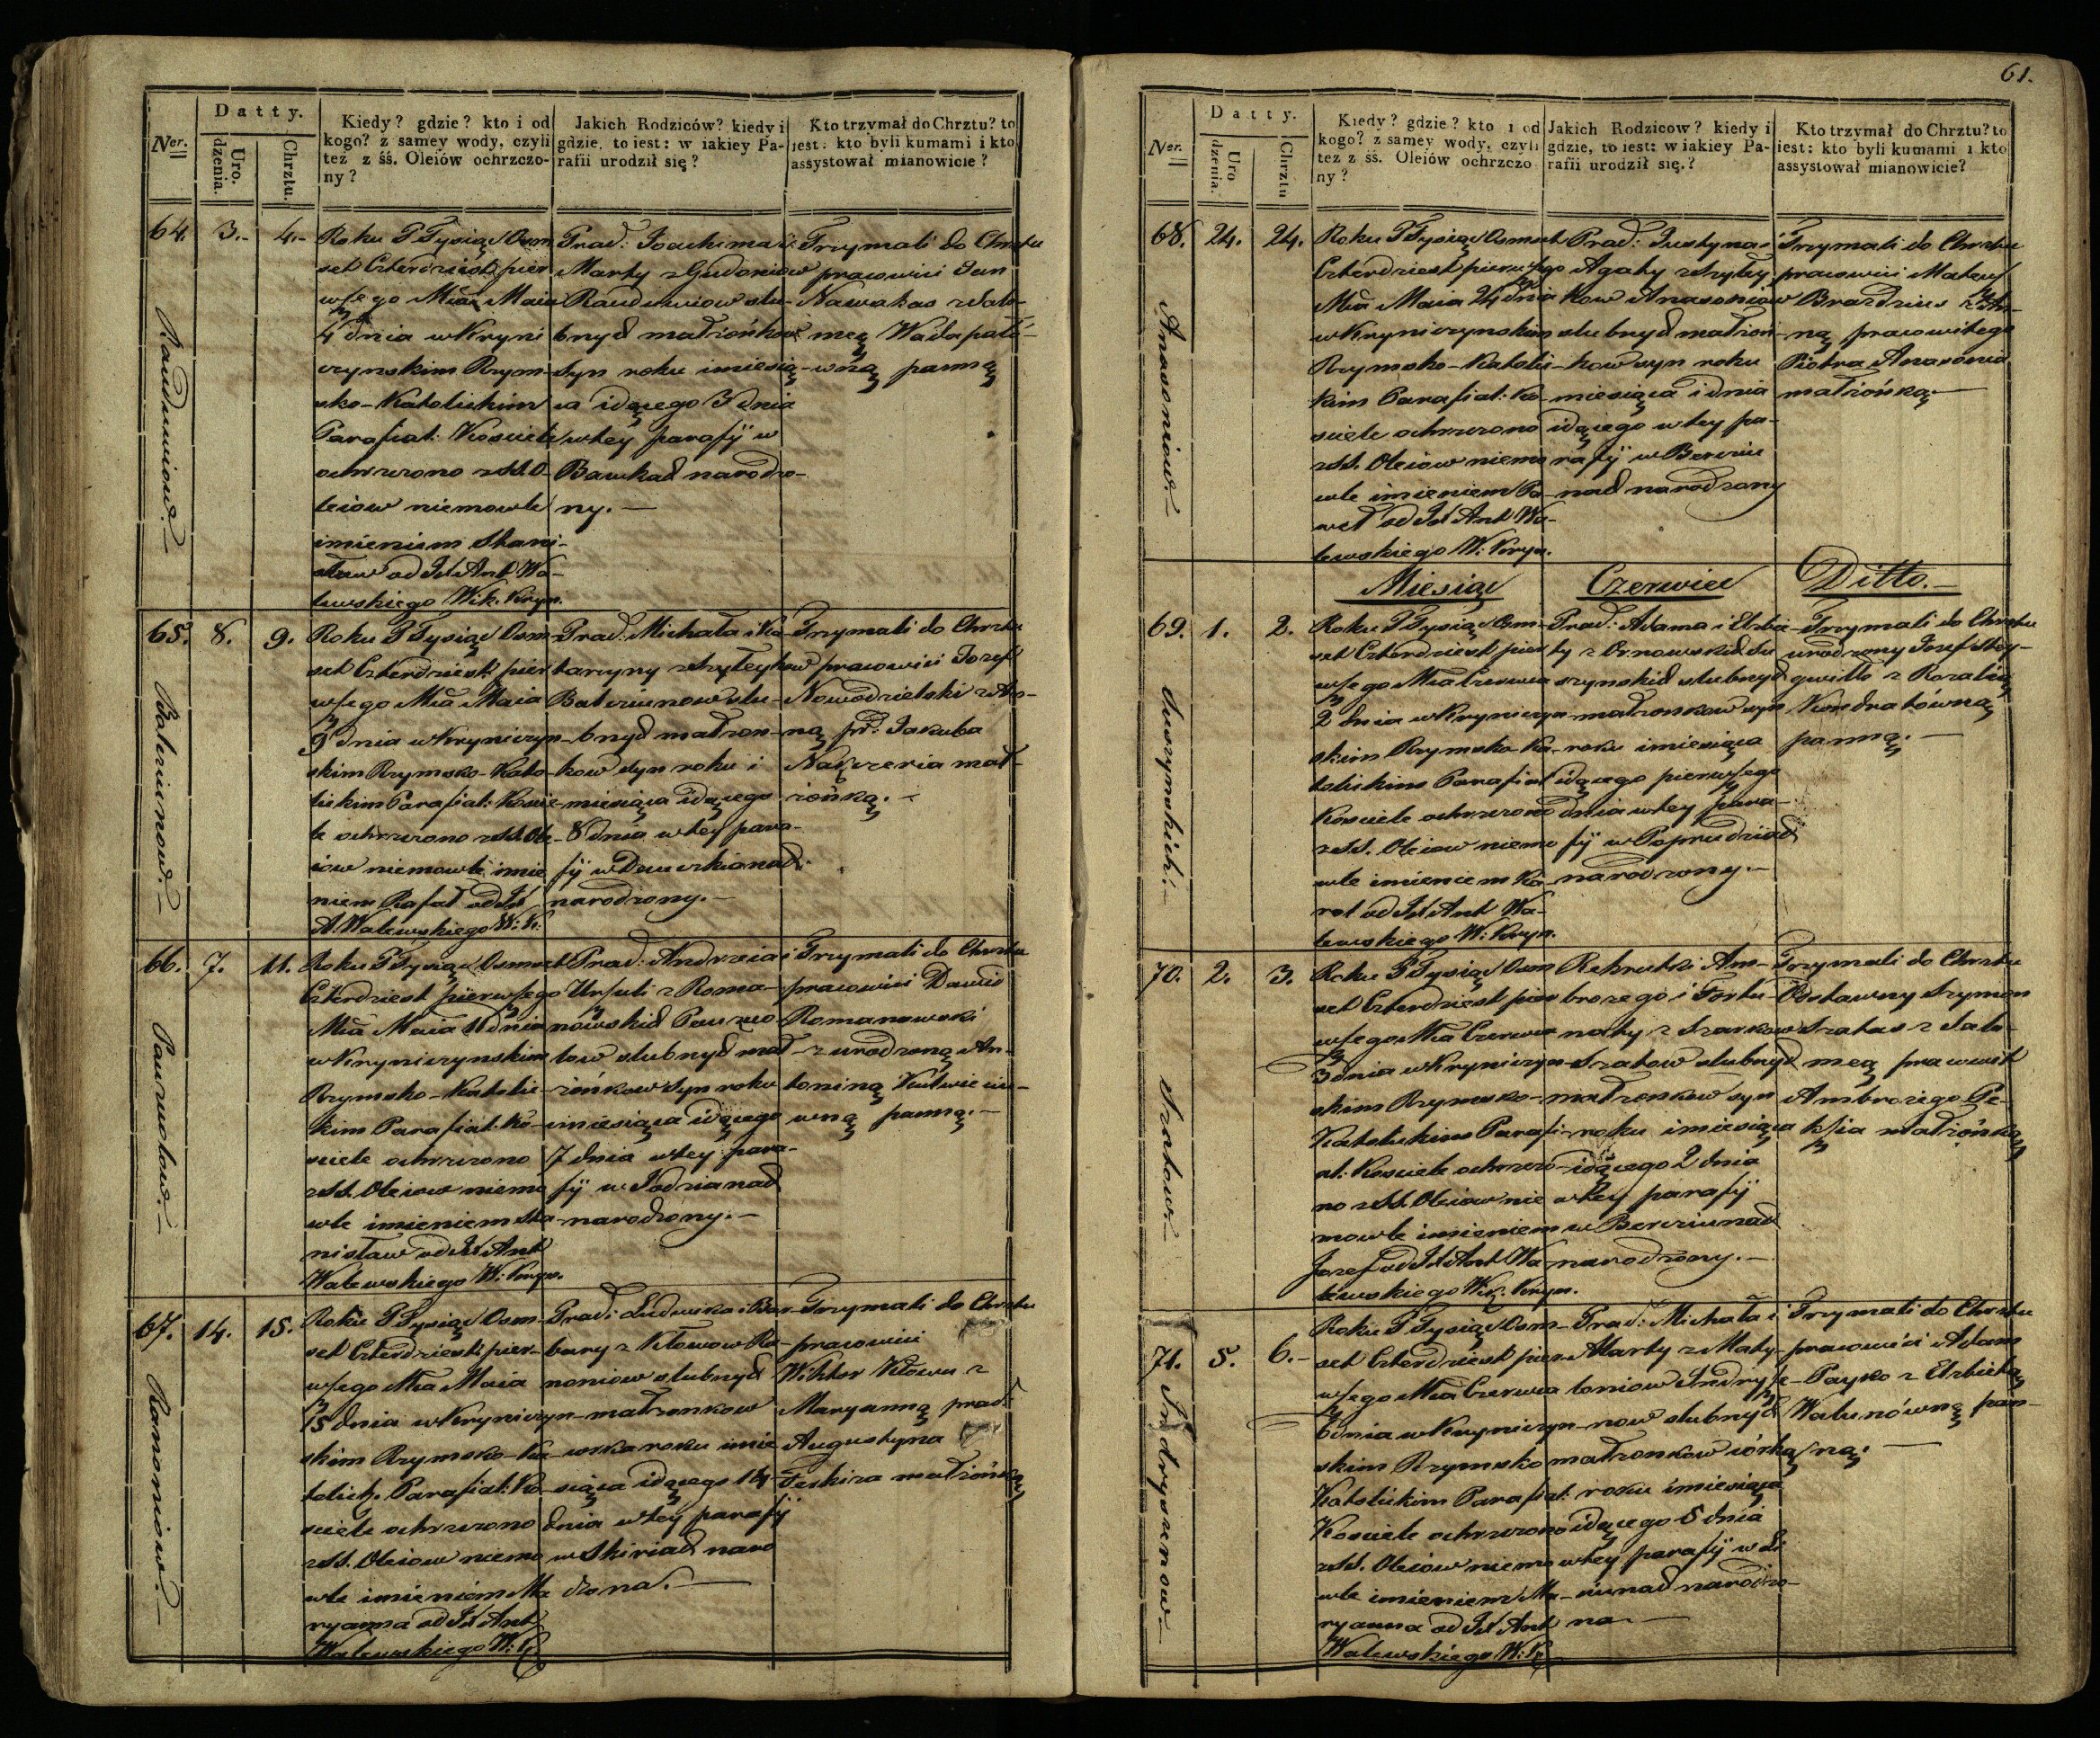 Ner.
Datty.
Uro.
dzenia.
Chrztu.
Kiedy? gdzie? kto i od
kogo? z samey wody, czyli
też z śś. Oleiów ochrzczo-
ny?
Jakich Rodziców? kiedy i
gdzie, to iest: w iakiey Pa-
rafii urodził się?
Kto trzymał do Chrztu? to
iest: kto byli kumami i kto
assystował mianowicie?
64.
3.-
4.-
Rauduwiow.-
Roku T Tysiąc Osm
set Czterdziest pier
wszego Mca Maia
4 dnia w Kryni
czynskim Rzym-
sko-Katolickim
Parafial: Kosciele
ochrzczono z SS. O-
leiow niemowle
imieniem Stani-
sław od Jd Ant Wa-
lewskiego Wik. Kryn.
Prac: Joachima i
Marty z Gudoniow
Rauduwiow slu-
bnych małżonkow
syn roku i miesią-
ca idącego 3 dnia
w tey parafij w
Bawkach narodzo-
ny.-
Trzymali do Chrztu
pracowici Jan
Nawakas z Salo-
meą Wadapale-
wną panną
65.
8.
9.
Baleziunow.-
Roku T Tysiąc Osm-
set Czterdziest pier
wszego Mca Maia
9 dnia w Kryniczyn-
skim Rzymsko-Kato-
lickim Parafial: Koscie-
le ochrzczono z SS. Ole-
iow niemowle imie
niem Rafał od Jd
A. Walewskiego W: K:
Prac: Michała i Ka-
tarzyny z Szyleykow
Baleziunow slu-
bnych małżon-
kow syn roku i
miesiąca idącego
8 dnia w tey para-
fij w Dauczkianach
narodzony.-
Trzymali do Chrztu
pracowici Jozef
Nowodzielski z An-
ną pr: Jakuba
Nakczeria mał-
żonką.-
66.
7.
11.
Pauzuolow.-
Roku T Tysiąc Osmset
Czterdziest pierwszego
Mca Maia 11 dnia
w Kryniczynskim
Rzymsko-Katolic-
kim Parafial: Ko-
sciele ochrzczono
z SS. Oleiow niemo
wle imieniem Sta-
nisław od Jd Ant
Walewskiego W: Kryn.
Prac: Andrzeia i
Urszuli z Roma-
nowskich Pauzuo-
low slubnych mał-
żonkow syn roku
i miesiąca idącego
7 dnia w tey para-
fij w Jodzianach
narodzony.-
Trzymali do Chrztu
pracowici Dawid
Romanowski
z urodzoną An-
toniną Kutwiciu-
wną panną.-
67.
14.
15.
Ramoniow.-
Roku T Tysiąc Osm-
set Czterdziest pier-
wszego Mca Maia
15 dnia w Kryniczyn-
skim Rzymsko-Ka-
tolick. Parafial: Ko-
sciele ochrzczono
z SS. Oleiow niemo
wle imieniem Ma
ryanna od Jd Ant
Walewskiego W: K
Prac: Ludwika i Bar-
bary z Kłowow Ra-
moniow slubnych
małżonkow
corka roku i mie
siąca idącego 14
dnia w tey parafij
w Skiriach naro
dzona.-
Trzymali do Chrztu
pracowici
Wiktor Kłowu z
Maryanną prac:
Augustyna
Teskira małżonką
61.
Ner.
Datty.
Uro
dzenia.
Chrztu
Kiedy? gdzie? kto i od
kogo? z samey wody, czyli
też z śś. Oleiów ochrzczo
ny?
Jakich Rodzicow? kiedy i
gdzie, to iest: w iakiey Pa-
rafii urodził się.?
Kto trzymał do Chrztu? to
iest: kto byli kumami i kto
assystował mianowicie?
68.
24.
24.
Anasoniow.-
Roku T Tysiąc Osmset
Czterdziest pierwszego
Mca Maia 24 dnia
w Kryniczynskim
Rzymsko-Katolic-
kim Parafial: Ko-
sciele ochrzczono
z SS. Oleiow niemo
wle imieniem Pa-
weł od Jd Ant Wa-
lewskiego W: Kryn.
Prac: Justyna i
Agaty z Szyley
kow Anasoniow
slubnych małżon-
kow syn roku
miesiąca i dnia
idącego w tey pa-
rafij w Berciu
nach narodzony
Trzymali do Chrztu
pracowici Mateusz
Brazdzius z An-
ną pracowitego
Piotra Anasonia
małżonką.-
Miesiąc Czerwiec Ditto.-
69.
1.
2.
Suszynskich.-
Roku T Tysiąc Osm-
set Czterdziest pier
wszego Mca Czerwca
2 dnia w Kryniczyn-
skim Rzymsko-Ka-
tolickim Parafial
Kosciele ochrzczono
z SS. Oleiow niemo
wle imieniem Ka-
rol od Jd Ant Wa-
lewskiego W: Kryn.
Prac: Adama i Elzbie-
ty z Ornowskich Su
szynskich slubnych
małżonkow syn
roku i miesiąca
idącego pierwszego
dnia w tey para-
fij w Poprudziach
narodzony.-
Trzymali do Chrztu
urodzony Josef Stey-
gwiłło z Rozalią
Kondratówną
panną.-
70.
2.
3.
Szatow.-
Roku T Tysiąc Osm
set Czterdziest pier
wszego Mca Czerwca
3 dnia w Kryniczyn-
skim Rzymsko-
Katolickim Parafi-
al: Kosciele ochrzczo-
no z SS. Oleiow nie
mowle imieniem
Jozef od Jd Ant Wa
lewskiego Wik. Kryn.
Rekrutki Am-
brozego i Fortu-
naty z Szarkow
Szatow slubnych
małżonkow syn
roku i miesiąca
idącego 2 dnia
w tey parafij
w Berziunach
narodzony.-
Trzymali do Chrztu
Odstawny Szymon
Szatas z Salo-
meą pracowit
Ambrozego Pe-
ksia małżonką
71.
5.
6.-
Indryszenow.-
Roku T Tysiąc Osm-
set Czterdziest pier
wszego Mca Czerwca
6 dnia w Kryniczyn-
skim Rzymsko
Katolickim Parafial:
Kosciele ochrzczono
z SS. Oleiow niemo
wle imieniem Ma-
ryanna od Jd Ant
Walewskiego W: K
Prac: Michała i
Marty z Maty-
loniow Indrysze-
now slubnych
małżonkow córka
roku i miesiąca
idącego 5 dnia
w tey parafij w Li
ciunach narodzo-
na.-
Trzymali do Chrztu
pracowici Adam
Payko z Elzbietą
Walunówną pan-
ną.-